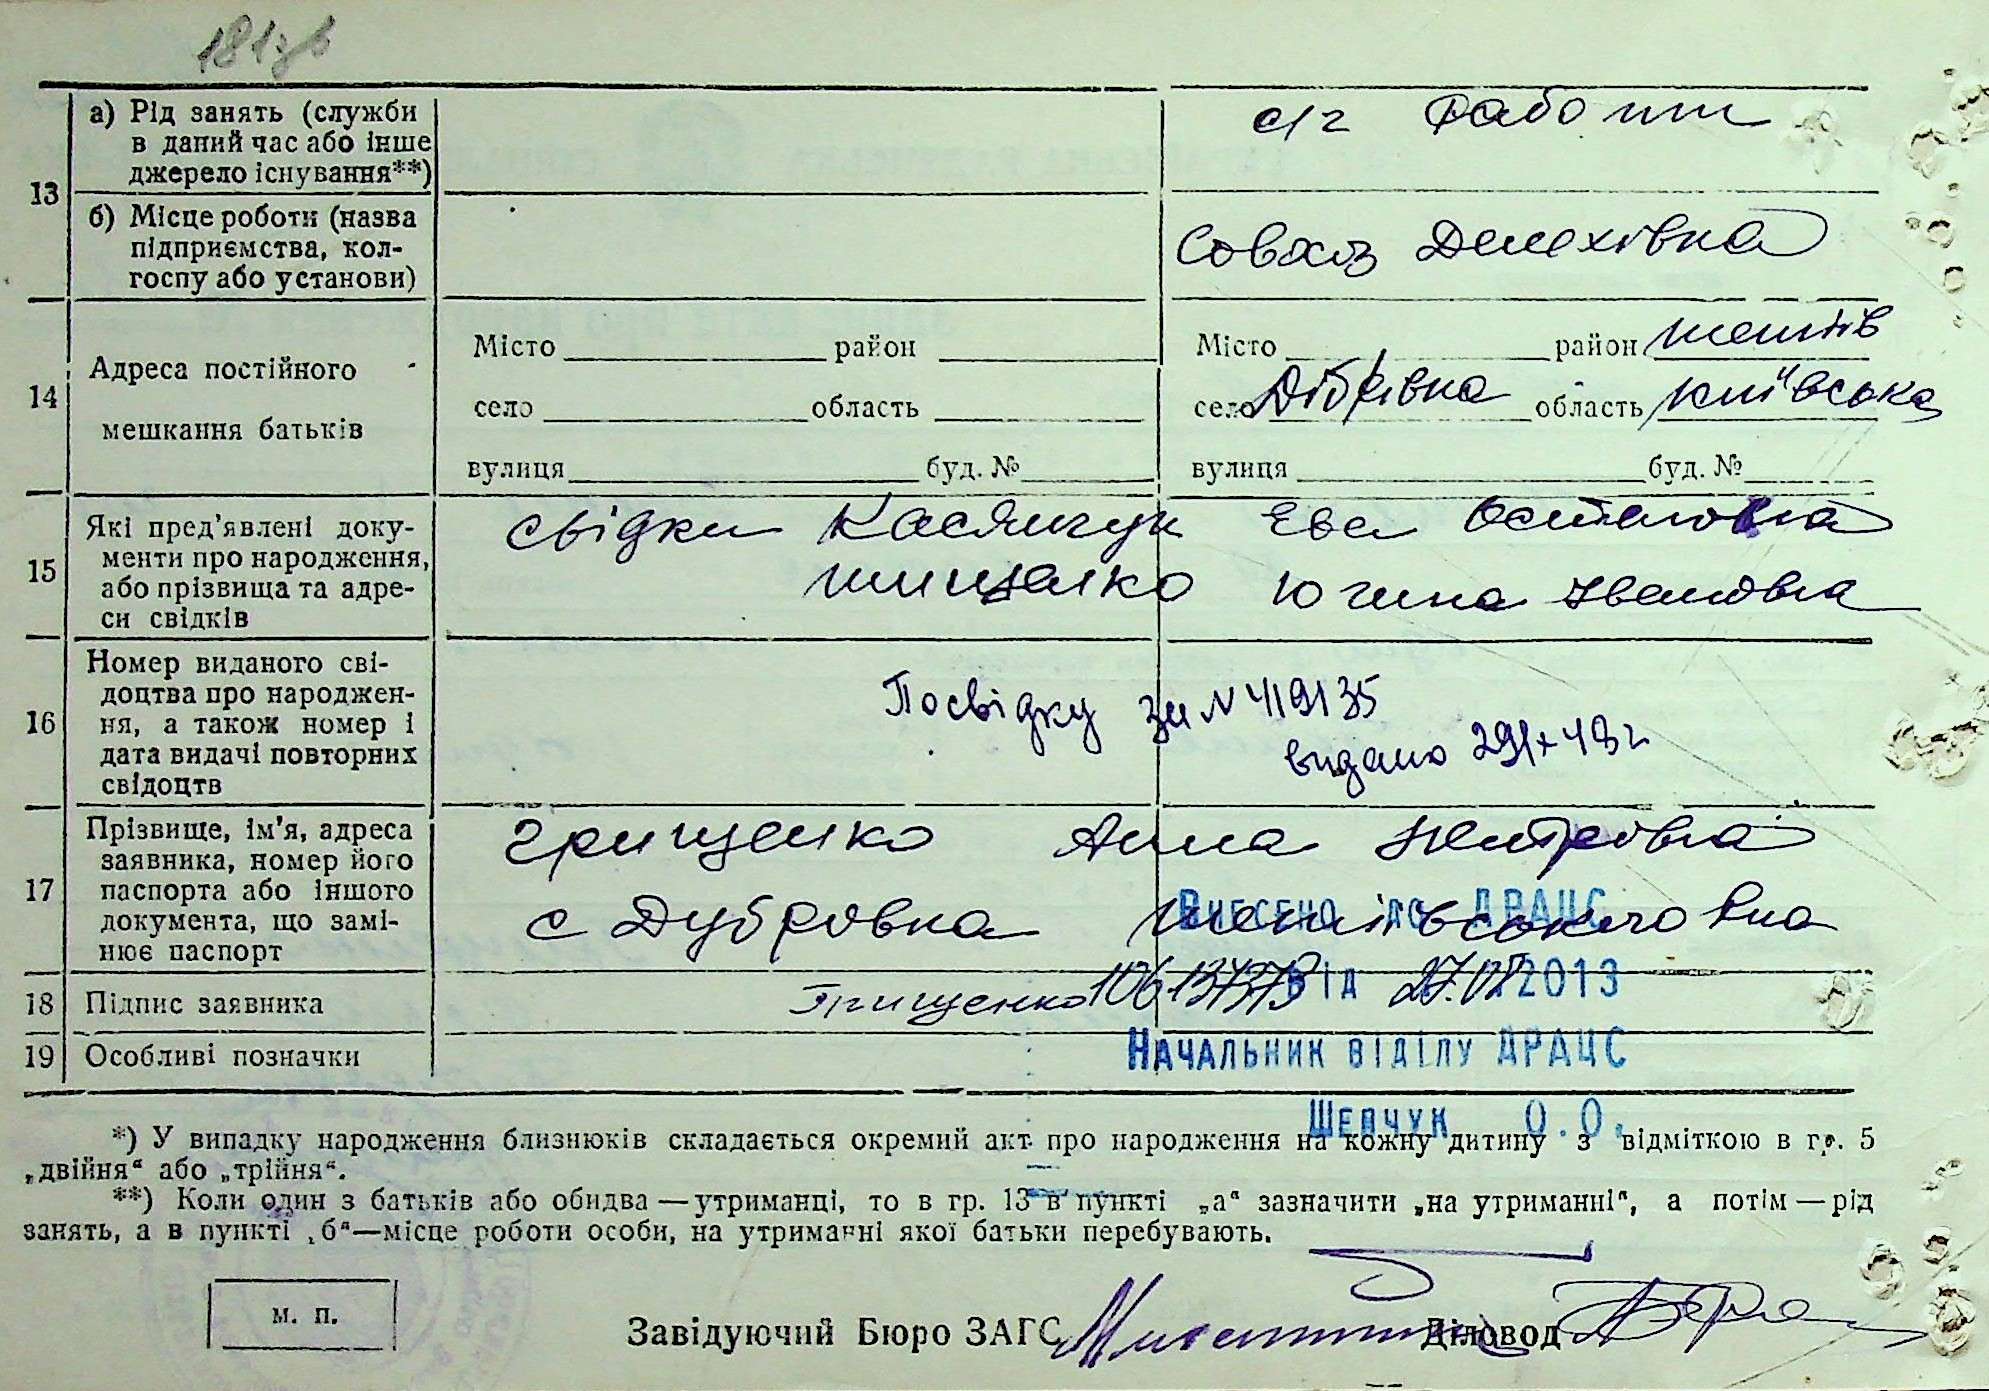 181зв
13
а) Рід занять (служби
в даний час або інше
джерело існування**)
с/г работи
б) Місце роботи (назва
підприємства, кол-
госпу або установи)
Совхоз
14
Адреса постійного
мешкання батьків
Місто район
село область
вулиця буд. №
Місто район
село Дібрівна область київська
вулиця буд. №
15
Які пред’явлені доку-
менти про народження,
або прізвища та адре-
си свідків
свідки Касянчук Ева Остаповна
Юхина Ивановна
16
Номер виданого сві-
доцтва про народжен-
ня, а також номер і
дата видачі повторних
свідоцтв
Посвідку за N 419135
видано
17
Прізвище, ім’я, адреса
заявника, номер його
паспорта або іншого
документа, що замі-
нює паспорт
Грищенко Анна Петрівна
с Дубровка
Внесено до ДРАЦС
18
Підпис заявника
Грищенко
від 2013
19
Особливі позначки
Начальник відділу ДРАЦС
Шевчук О.О.
*) У випадку народження близнюків складається окремий акт про народження на кожну дитину з відміткою в гр. 5
„двійня“ або „трійня“.
**) Коли один з батьків або обидва — утриманці, то в гр. 13 в пункті „а“ зазначити „на утриманні“, а потім — рід
занять, а в пункті „б“—місце роботи особи, на утриманні якої батьки перебувають.
м. п.
Завідуючий Бюро ЗАГС
Діловод